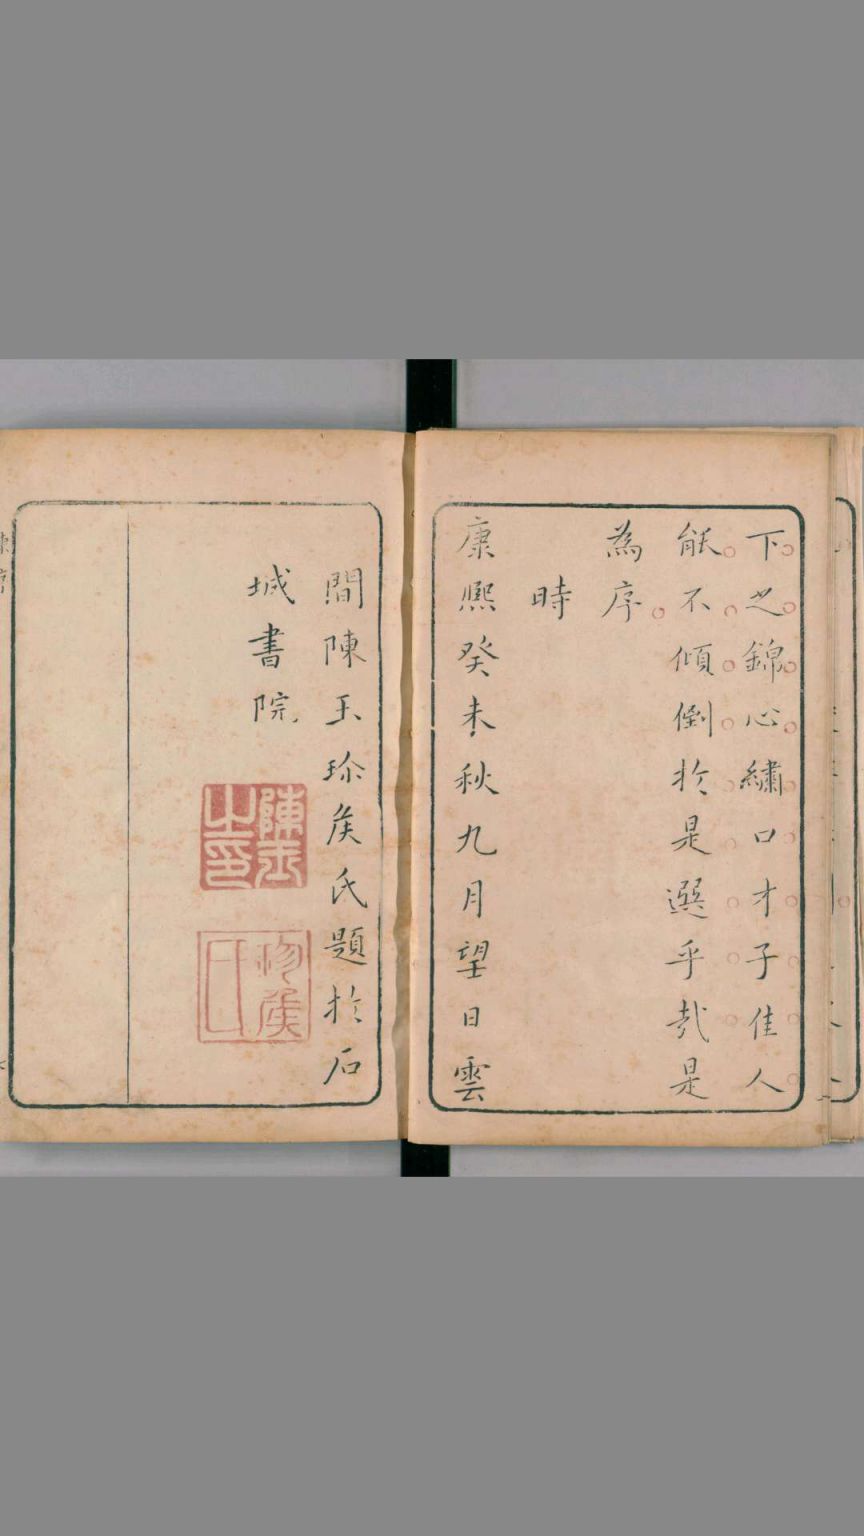 下之錦心繡口才子佳人
能不傾倒於是選乎哉是
為序
時
康熙癸未秋九月望日雲
間陳玉珍矦氏題於石
城書院
陳玉
之印
珍矦
氏